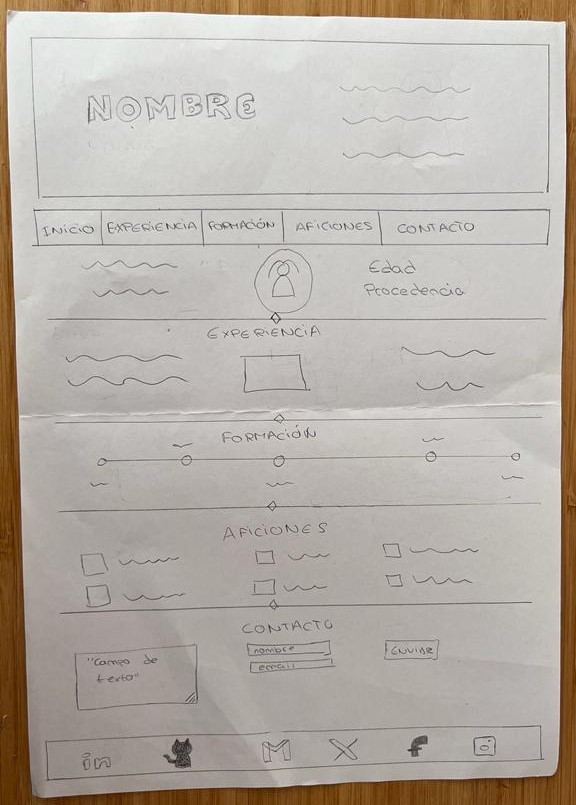 NOMBRE
INICIO EXPERIENCIA FORMACIÓN AFICIONES CONTACTO
Edad
Procedencia
EXPERIENCIA
FORMACIÓN
AFICIONES
CONTACTO
"Campo de
texto"
nombre
email
ENVIAR
in
M
X
f